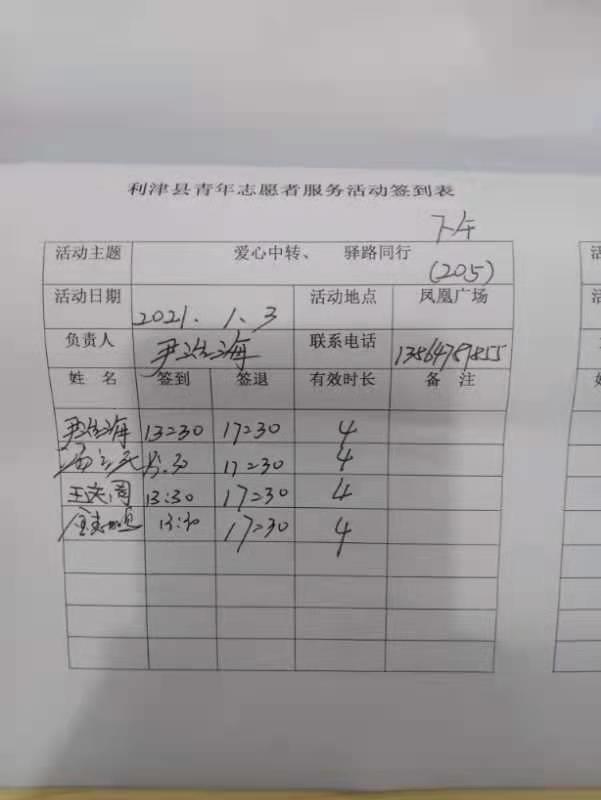 利津县青年志愿者服务活动签到表
下午
活动主题 爱心中转、 驿路同行
(205)
活动日期 2021.1.3 活动地点 凤凰广场
负责人 海 联系电话
姓 名 签到 签退 有效时长 备 注
海 13:30 17:30 4
13:30 17:30 4
王 13:30 17:30 4
13:30 17:30 4